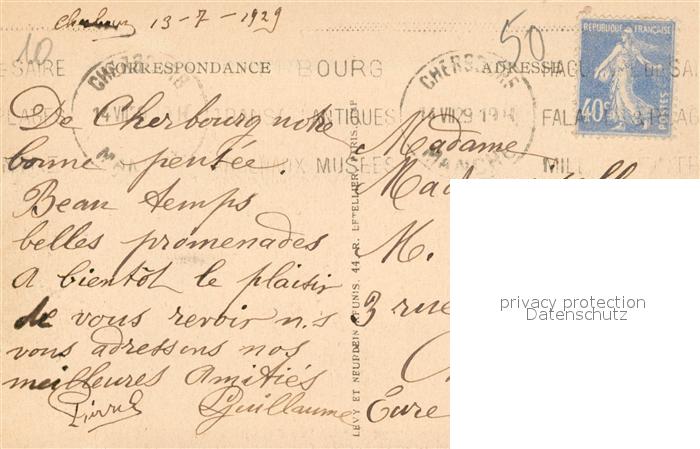 13-7-1929
10
50
CORRESPONDANCE
ADRESSE
RÉPUBLIQUE FRANÇAISE
40c
POSTES
BOURG
ANTIQUES
MUSÉES
14 VII 29
MANCHE
De Cherbourg notre
bonne pensée.
Beau temps
belles promenades
A bientôt le plaisir
de vous revoir n.s
vous adressons nos
meilleures amitiés
Pierre Guillaume
Madame
M.
3 rue
Eure
LEVY ET NEURDEIN RÉUNIS, 44, R. LETELLIER, PARIS
privacy protection
Datenschutz